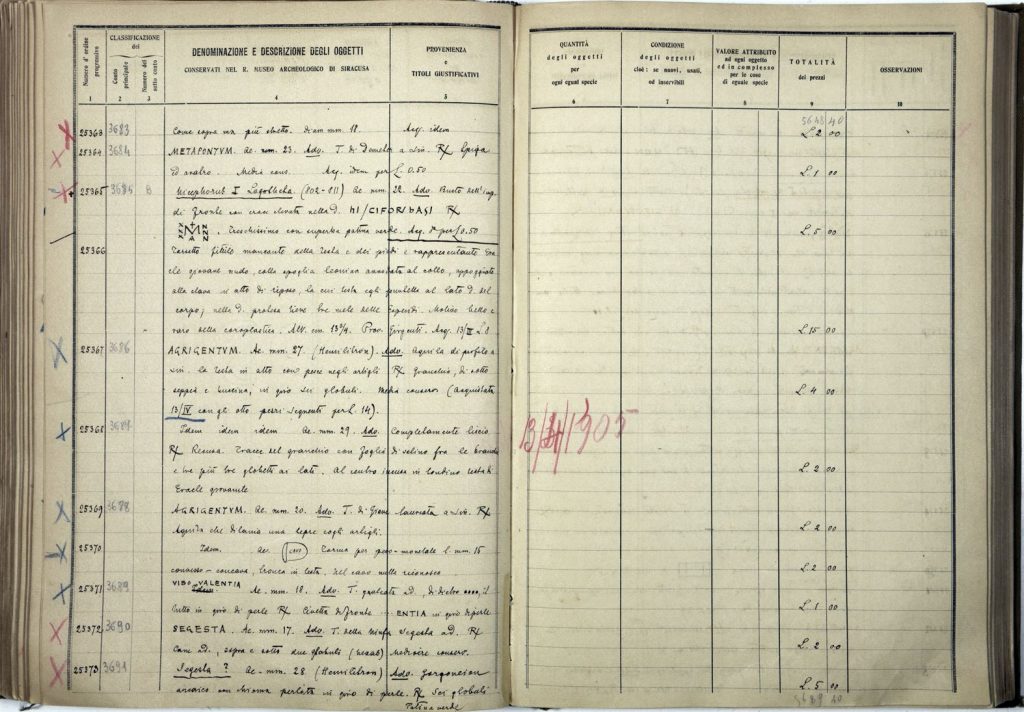 Numero d'ordine progressivo
CLASSIFICAZIONE
del
Conto principale
Numero del sotto conto
DENOMINAZIONE E DESCRIZIONE DEGLI OGGETTI
CONSERVATI NEL R. MUSEO ARCHEOLOGICO DI SIRACUSA
PROVENIENZA
e
TITOLI GIUSTIFICATIVI
1 2 3 4 5
QUANTITÀ
degli oggetti
per
ogni eguel specie
CONDIZIONE
degli oggetti
cioè: se nuovi, usati,
od inservibili
VALORE ATTRIBUITO
ad ogni oggetto
ed in complesso
per le cose
di eguale specie
TOTALITÀ
dei prezzi
OSSERVAZIONI
6 7 8 9 10
5648 40
25363 3683 Come sopra ma più stretto. diam mm. 18. Acq. idem L. 2 00
25364 3684 METAPONTVM. Ae. mm. 23. Adv. T. di Demeter a sin. Rx Spiga
Ed aratro. Media cons. Acq. idem per L. 0.50 L. 1 00
25365 3685 B Nicephorus I Logotheta (802-811) Ae mm. 22. Adv. Busto dell'imp.
di fronte con croce elevata nella d. NI/CIFOR bASI Rx
XXX M NNN. Freschissimo con superba patina verde. Acq. per L 0.50 L. 5 00
25366 Torsetto fittile mancante della testa e dei piedi e rappresentante Era
cle giovane nudo, colla spoglia leonina annodata al collo, appoggiato
alla clava in atto di riposo, la cui testa egli puntella al lato d. del
corpo; nella d. protesa tiene tre mele delle Esperidi. Motivo bello e
raro nella coroplastica. Alt. cm. 13¼. Prov. Girgenti. Acq. 13/III L. 8 L. 15 00
25367 3686 AGRIGENTVM. Ae. mm. 27. (Hemilitron). Adv. Aquila di profilo a
sin. la testa in alto con pesce negli artigli Rx Granchio, di sotto
seppia e buccina; in giro sei globuli. Media conserv. (acquistata L. 4 00
13/IV con gli otto pezzi seguenti per L. 14).
13/4/1905
25368 3687 Idem idem idem Ae. mm. 29. Adv. Completamente liscio
Rx Recusa. Tracce del granchio con foglia di selino fra le branche
e tre più tre globetti ai lati. Al centro incusa in tondino testa di L. 2 00
Eracle giovante
25369 3688 AGRIGENTVM. Ae. mm. 20. Adv. T. di Giove laureata a sin. Rx
Aquila che dilania una lepre cogli artigli. L. 2 00
25370 Idem. Ae. Forma per peso-monetale l. mm. 15
convesso-concava, tronca in testa. Nel cavo nulla riconosco L. 2 00
25371 3689 VIBO VALENTIA Ae. mm. 18. Adv. T. galeata a d., di dietro, il
tutto in giro di perle Rx Civetta di fronte ENTIA in giro di perle L. 1 00
25372 3690 SEGESTA. Ae. mm. 17. Adv. T. della Ninfa Segesta a d. Rx
Cane a d., sopra e sotto due globuli (hexas) Mediocre conserv. L. 2 00
25373 3691 Segesta? Ae. mm. 28 (Hemilitron) Adv. Gorgoneion
arcaico con chioma perlata in giro di perle. Rx Sei globuli L. 5 00
Patina verde 5689 40